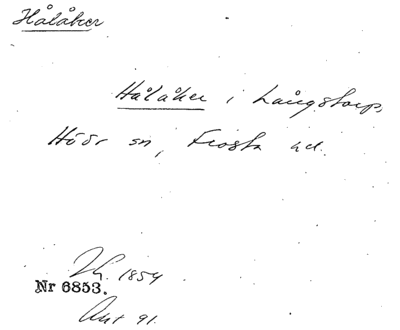 Hålåker
Hålåker i Långstorp,
Höör sn, Frosta hd.
1854
Nr 6853.
Akt 91.